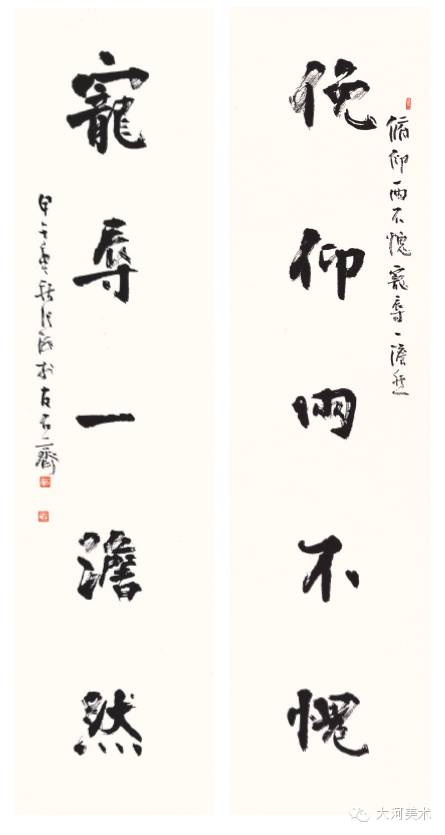 俛仰兩不愧
俯仰兩不愧寵辱一澹然
寵辱一澹然
甲午
大河美术